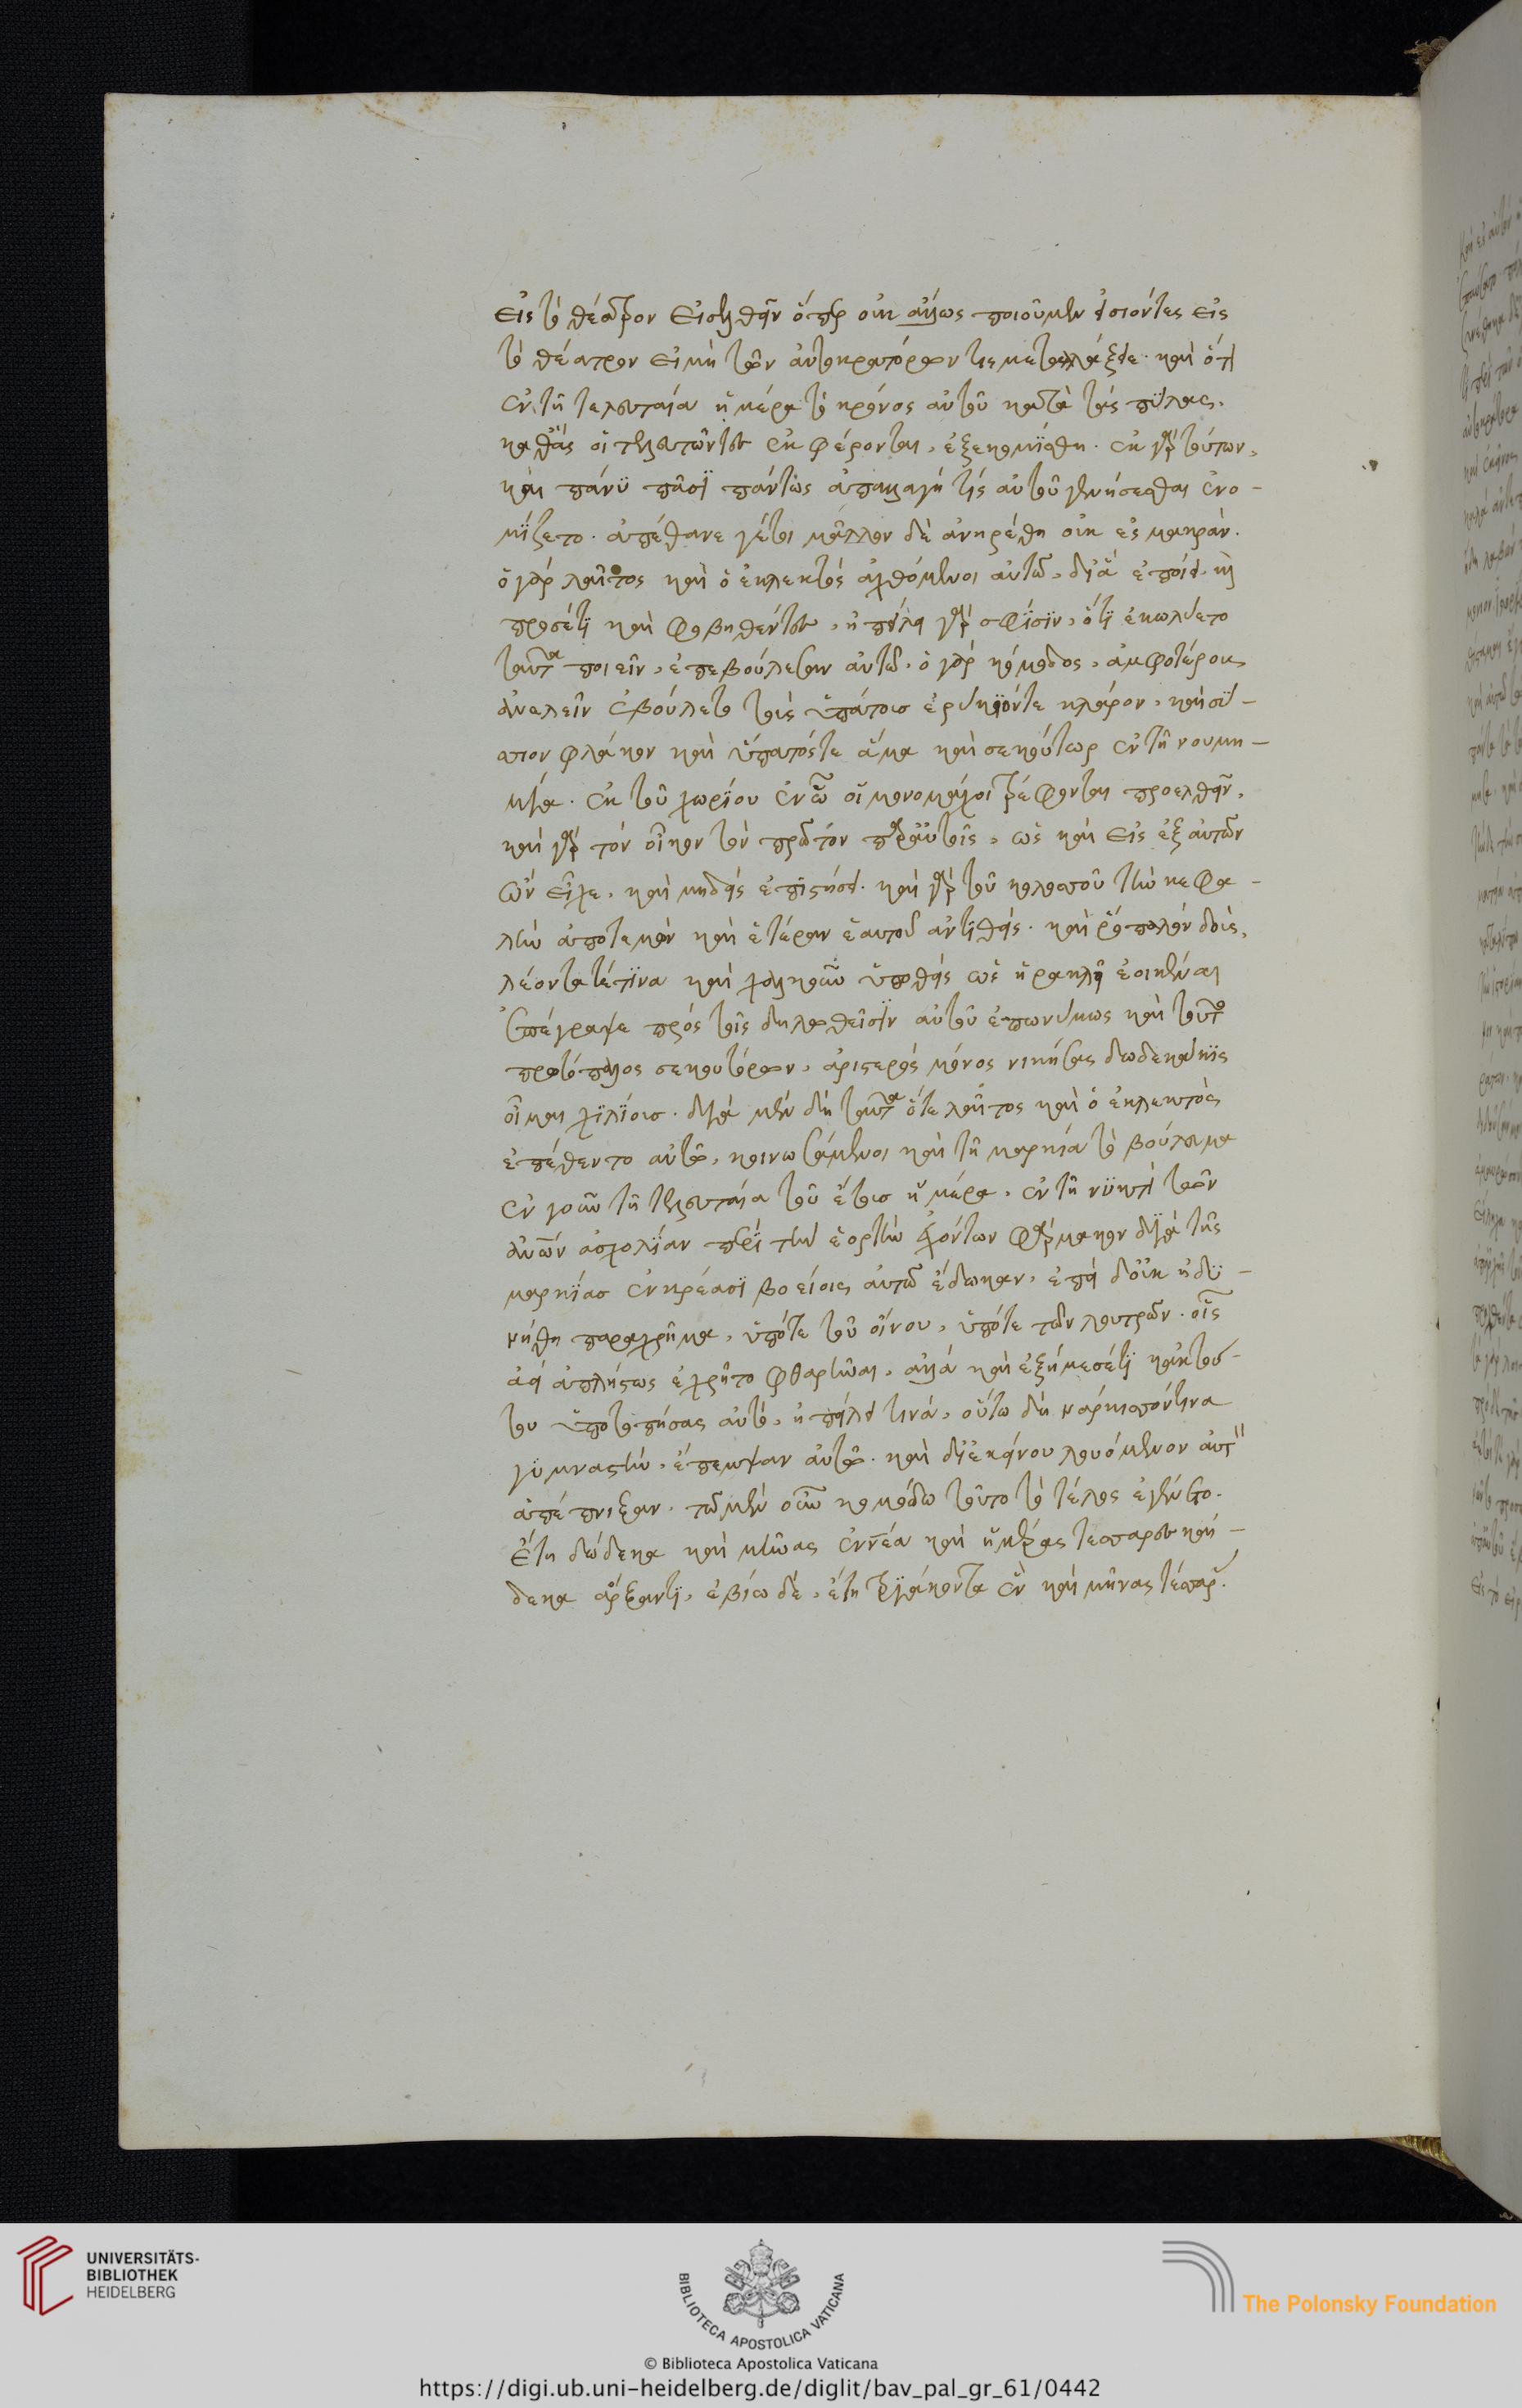 εἰς τὸ θέατρον εἰσελθεῖν ὅπερ οὐκ ἄλλως ποιοῦμεν ἐσιόντες εἰς
τὸ θέατρον εἰ μὴ τῶν αὐτοκρατόρων τις μεταλλάξειε. καὶ ὅτι
ἐν τῇ τελευταία ἡμέρα τὸ κράνος αὐτοῦ κατὰ τὰς πύλας,
καθἃς οἱ τελευτῶντες ἐκφέρονται, ἐξεκομίσθη. ἐκ γὰρ τούτων,
καὶ πάνυ πᾶσι πάντως ἀπαλλαγή τις αὐτοῦ γενήσεσθαι ἐνο-
μίζετο. ἀπέθανε γέτοι μᾶλλον δὲ ἀνηρέθη οὐκ ἐς μακράν.
ὁ γὰρ λαῖτος καὶ ὁ ἐκλεκτὸς ἀχθόμενοι αὐτῶ, δι᾽ ἃ ἐποίει. καὶ
προσέτι καὶ φοβηθέντες, ἠπείλει γάρ σφισιν, ὅτι ἐκωλύετο
ταῦτα ποιεῖν, ἐπεβούλευσαν αὐτῶ. ὁ γὰρ κόμοδος, ἀμφοτέρους
ἀνελεῖν ἐβούλετο τοὺς ὑπάτους ἐρύκιόντε κλάρον, καὶ σύ-
σσιον φλάκον καὶ ὕπατόςτε ἅμα καὶ σεκούτωρ ἐν τῇ νουμη-
νία. ἐκ τοῦ χωρίου ἐν ὧ οἱ μονομάχοι τρέφονται προελθεῖν,
καὶ γὰρ τὸν οἶκον τὸν πρῶτον παρ᾽ αὐτοῖς, ὡς καὶ εἷς ἐξ αὐτῶν
ὢν εἶχε. καὶ μηδεὶς ἐπιστήσει. καὶ γὰρ τοῦ κολοσσοῦ τὴν κεφα-
λὴν ἀποτεμὼν καὶ ἑτέραν ἑαυτοῦ ἀντιθεὶς. καὶ ῥόπαλον δοὺς,
λέοντα τέτινα καὶ χαλκοῦν ὑποθεὶς ὡς ἡρακλεῖ ἐοικέναι
ἐπέγραψε πρὸς τοῖς δηλωθεῖσιν αὐτοῦ ἐπωνύμοις καὶ τοῦτο
πρωτόπαλος σεκουτόρων, ἀριστερὸς μόνος νικήσας δωδεκάκις
οἶμαι χιλίους. διὰ μὲν δὴ ταῦτα ὅτε λαῖτος καὶ ὁ ἐκλεκτὸς
ἐπέθεντο αὐτῶ, κοινωσάμενοι καὶ τῇ μαρκία τὸ βούλευμα
ἐν γοῦν τῇ τελευταία τοῦ ἔτους ἡμέρα, ἐν τῇ νυκτὶ τῶν
ἀνων ἀσχολίαν περὶ τὴν ἑορτὴν ἐχόντων φάρμακον διὰ τῆς
μαρκίας ἐν κρέασι βοείοις αὐτῶ ἔδωκαν, ἐπεὶ δ᾽ οὐκ ἠδυ-
νήθη παραχρῆμα, ὑπότε τοῦ οἴνου, ὑπότε τῶν λουτρῶν. οἷς
ἀεὶ ἀπλήστως ἐχρῆτο φθαρῆναι, ἀλλὰ καὶ ἐξήμεσέτι κἀκ τού-
του ὑποτοπήσας αὐτὸ, ἠπείλει τινά, οὕτω δὴ νάρκισσόντινα
γυμναστὴν, ἔπεμψαν αὐτῶ. καὶ δι᾽ ἐκείνου λουόμενον αὐτὸν
ἀπέπνιξαν. τῶ μὲν οὖν κομόδω τοῦτο τὸ τέλος ἐγένετο.
Ἔτη δώδεκα καὶ μῆνας ἐννέα καὶ ἡμέρας τεσσαρεσκαί-
δεκα ἄρξαντι, ἐβίω δὲ, ἔτη τριάκοντα ἓν καὶ μῆνας τέσσαρ.
UNIVERSITÄTS-
BIBLIOTHEK
HEIDELBERG
BIBLIOTECA APOSTOLICA VATICANA
The Polonsky Foundation
© Biblioteca Apostolica Vaticana
https://digi.ub.uni-heidelberg.de/diglit/bav_pal_gr_61/0442